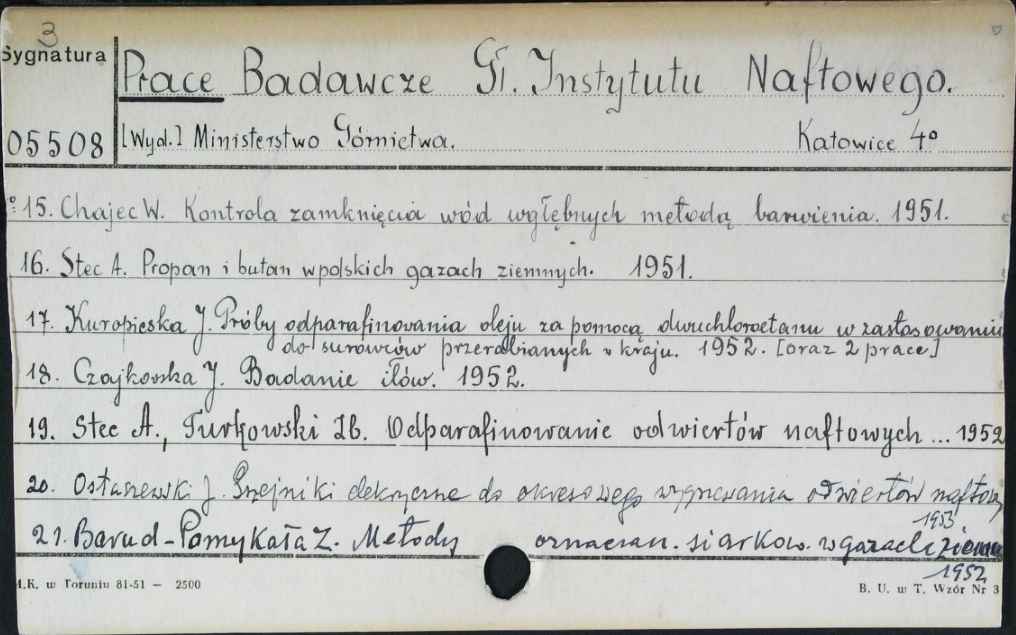 3
Sygnatura
Prace Badawcze Gł. Instytutu Naftowego.
05508
[Wyd.] Ministerstwo Górnictwa. Katowice 4°
15. Chajec W. Kontrola zamknięcia wód wgłębnych metodą barwienia. 1951.
16. Stec A. Propan i butan w polskich gazach ziemnych. 1951.
17. Kuropieska J. Próby odparafinowania oleju za pomocą dwuchloroetanu w zastosowaniu
do surowców przerabianych w kraju. 1952. [oraz 2 prace]
18. Czajkowska J. Badanie iłów. 1952.
19. Stec A., Turkowski Zb. Odparafinowanie odwiertów naftowych ... 1952
20. Ostaszewski J. Grzejniki elektryczne do okresowego wygrzewania odwiertów naftow
1953.
21. Barud-Pomykała Z. Metody oznaczan. siarkow. w gazach ziemn
1952
M.K. w Toruniu 81-51 — 2500
B. U. w T. Wzór Nr 3